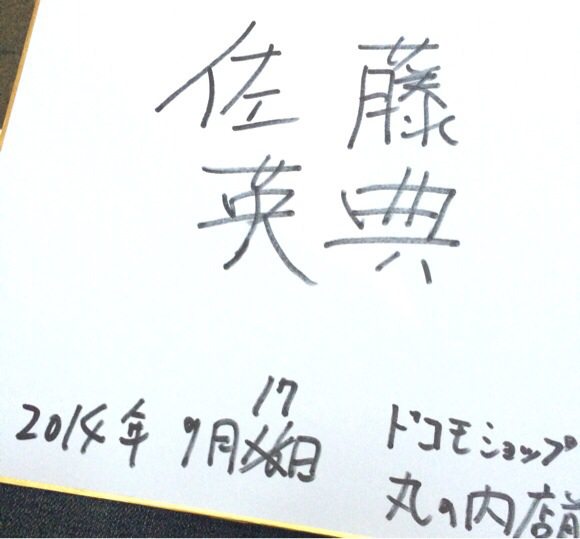 佐藤
英典
2014年 9月17日
ドコモショップ
丸の内店前